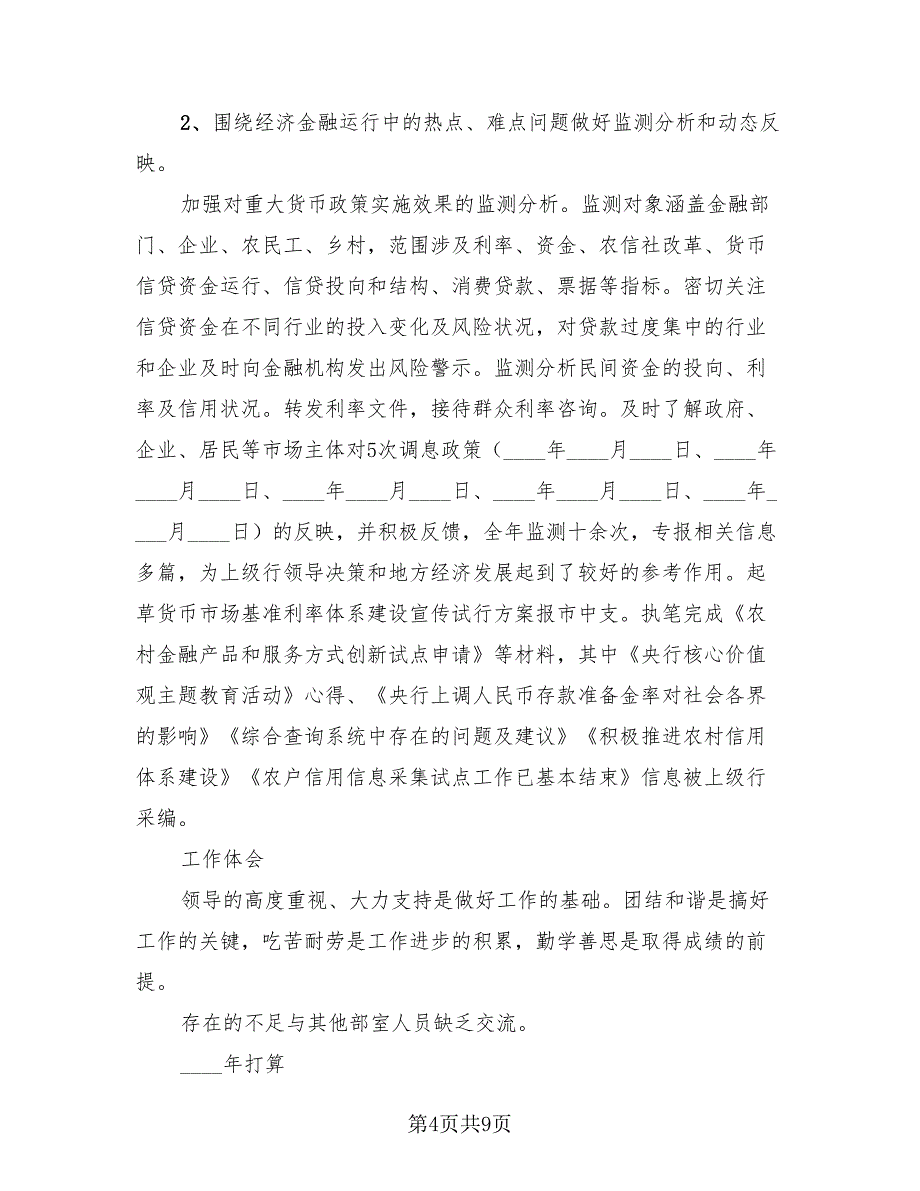 2、围绕经济金融运行中的热点、难点问题做好监测分析和动态反
映。
加强对重大货币政策实施效果的监测分析。监测对象涵盖金融部
门、企业、农民工、乡村，范围涉及利率、资金、农信社改革、货币
信贷资金运行、信贷投向和结构、消费贷款、票据等指标。密切关注
信贷资金在不同行业的投入变化及风险状况，对贷款过度集中的行业
和企业及时向金融机构发出风险警示。监测分析民间资金的投向、利
率及信用状况。转发利率文件，接待群众利率咨询。及时了解政府、
企业、居民等市场主体对5次调息政策（____年____月____日、____年
____月____日、____年____月____日、____年____月____日、____年_
___月____日）的反映，并积极反馈，全年监测十余次，专报相关信息
多篇，为上级行领导决策和地方经济发展起到了较好的参考作用。起
草货币市场基准利率体系建设宣传试行方案报市中支。执笔完成《农
村金融产品和服务方式创新试点申请》等材料，其中《央行核心价值
观主题教育活动》心得、《央行上调人民币存款准备金率对社会各界
的影响》《综合查询系统中存在的问题及建议》《积极推进农村信用
体系建设》《农户信用信息采集试点工作已基本结束》信息被上级行
采编。
工作体会
领导的高度重视、大力支持是做好工作的基础。团结和谐是搞好
工作的关键，吃苦耐劳是工作进步的积累，勤学善思是取得成绩的前
提。
存在的不足与其他部室人员缺乏交流。
____年打算
第4页共9页